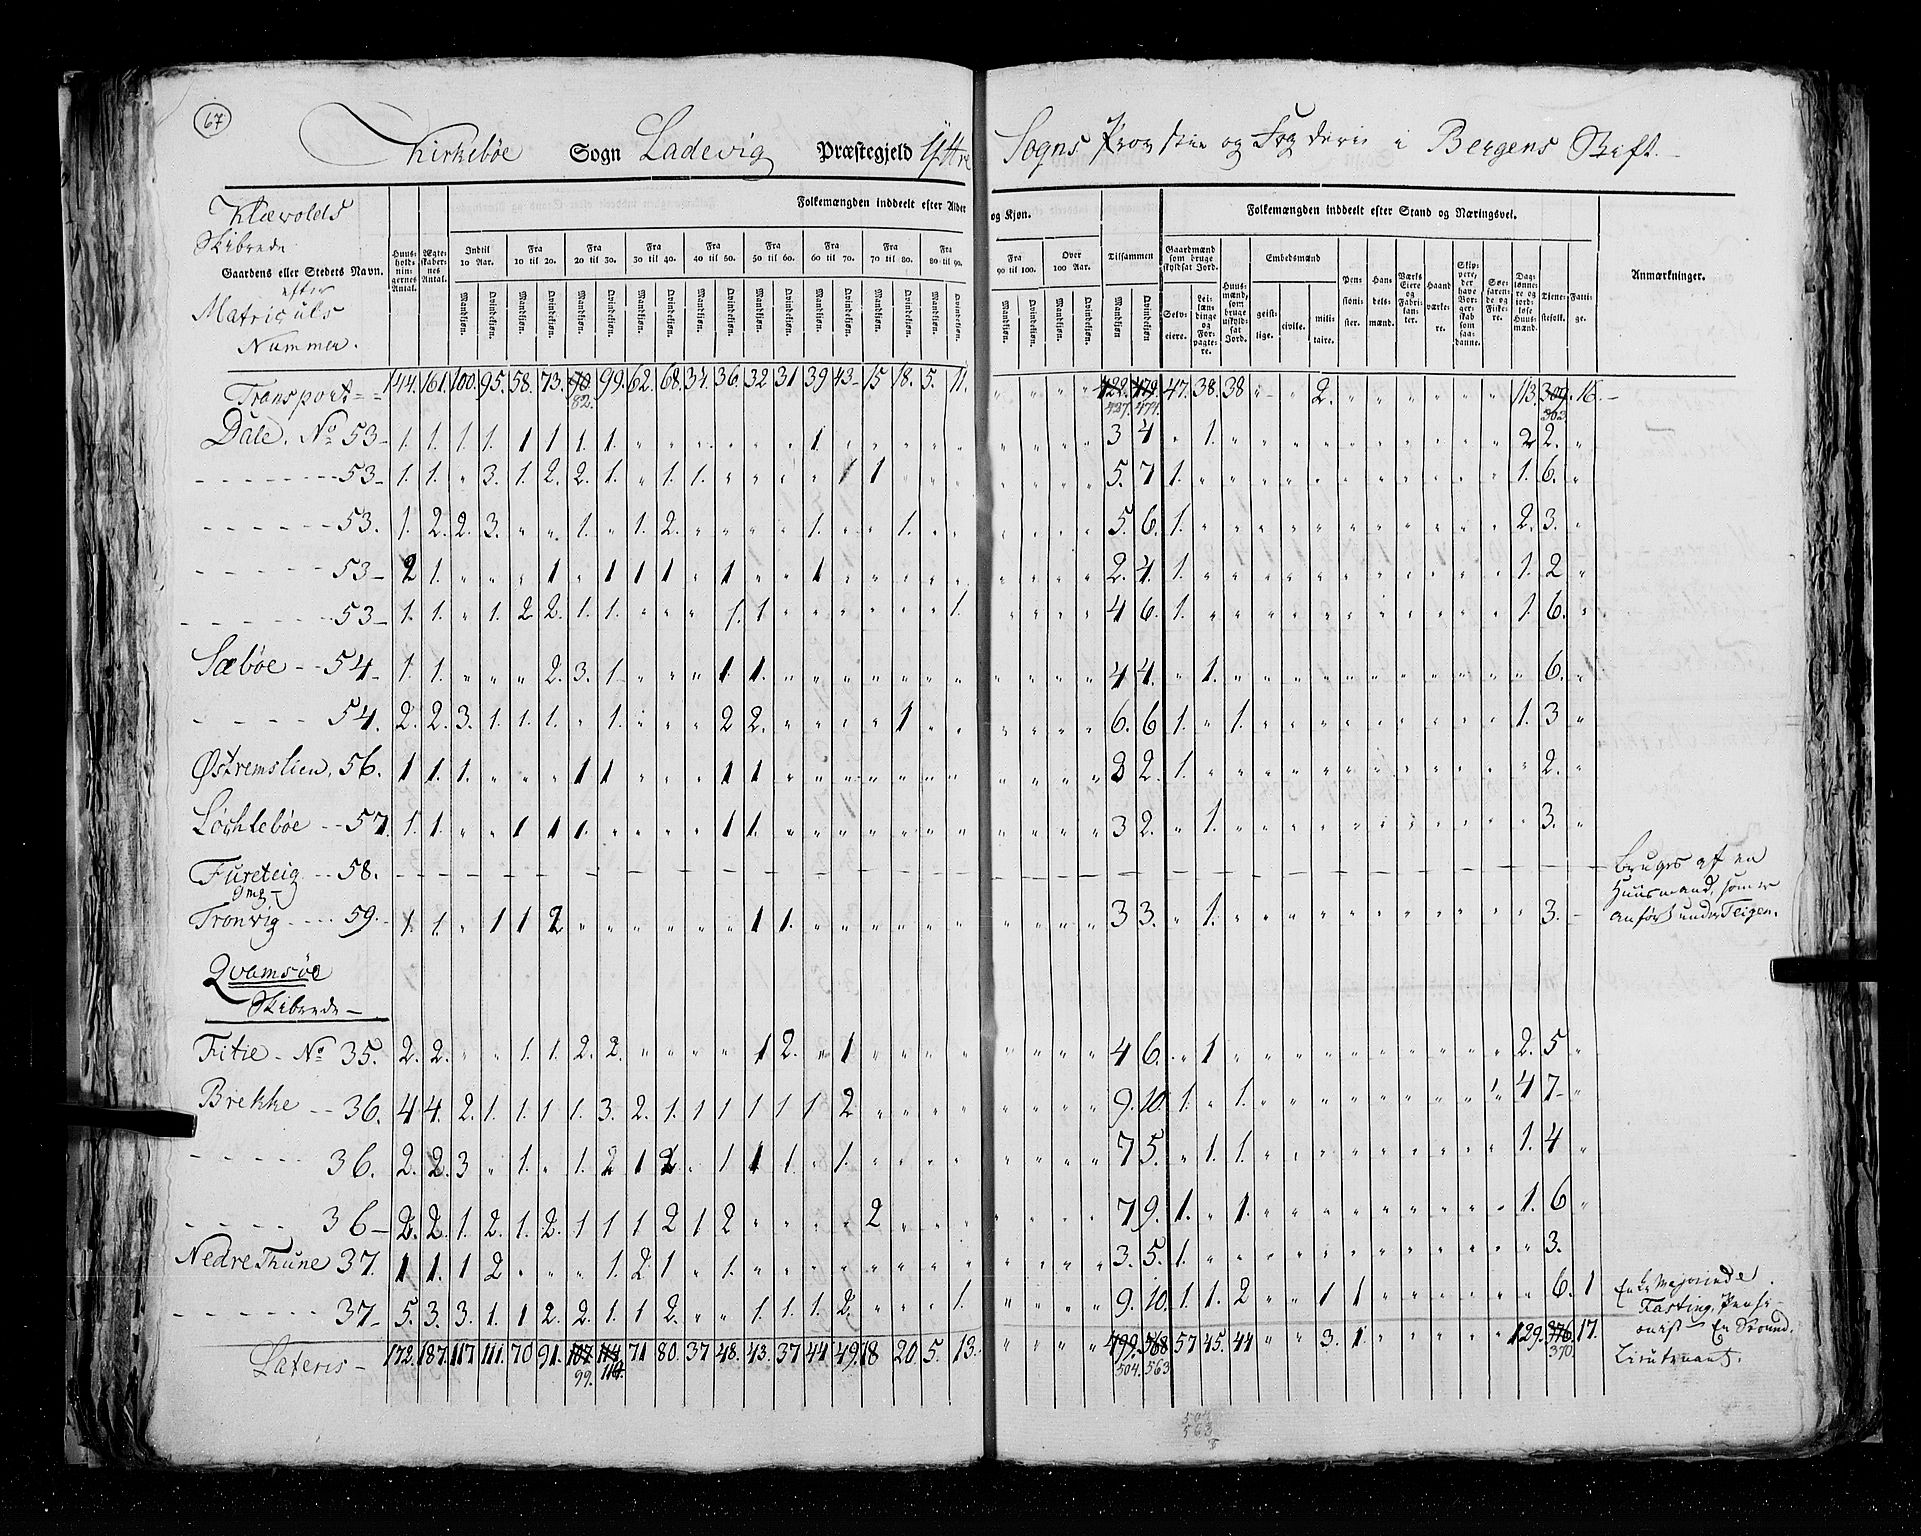 67
Kirkebøe Sogn Ladevig Præstegjeld Yttre Sogns Provstie og Fogderie i Bergens Stift.
Klævolds
Skibrede
Gaardens eller Stedets Navn.
efter
Matriculs
Nummer.
Huusholdningernes Antal. Ægteskabernes Antal.
Folkemængden inddeelt efter Alder og Kjøn.
Indtil 10 Aar. Fra 10 til 20. Fra 20 til 30. Fra 30 til 40. Fra 40 til 50. Fra 50 til 60. Fra 60 til 70. Fra 70 til 80. Fra 80 til 90. Fra 90 til 100. Over 100 Aar. Tilsammen
Mandkjøn. Qvindekjøn.
Folkemængden inddeelt efter Stand og Næringsvei.
Gaardmænd som bruge skyldsat Jord. Selveiere. Leilændinge og Forpagtere. Huusmænd, som bruge uskyldsat Jord. Embedsmænd geistlige. civile. militaire. Pensionister. Handelsmænd. Værks Eiere og Fabrikanter. Haandværkere. Skippere, der have Borgerskab som saadanne. Søefarende og Fiskere. Daglønnere og jordløse Huusmænd. Tjenestefolk. Fattige.
Anmærkninger.
Transport 144. 161. 100. 95. 58. 73. 90. 99. 62. 68. 34. 36. 32 31 39 43 15 18. 5. 11. " " " " 422. 479. 47. 38. 38 " " 2. " " " " " " 113. 309. 16.
82. 427. 474. 303
Dale. No 53 1. 1. 1. 1. 1 1 1. 1 " " " " " " 1. " " " " " " " " " 3 4 " 1. " " " " " " " " " " 2 2. "
53 1. 1. " 3. 1. 2. 2. 1. " 1. 1. " " " " 1 1 " " " " " " " 5. 7 1. " " " " " " " " " " " 1. 6. "
53. 1. 2. 2. 3. " " 1. " 1. 2. " " " " 1. " " 1. " " " " " " 5. 6. 1. " " " " " " " " " " " 2. 3. "
53 2 1. " " " 1 " 1 1 1 " 1 " " 1 " " " " " " " " " 2. 4. 1. " " " " " " " " " " " 1. 2 "
53 1. 1. " 1. 2 2. 1. 1. " " " 1. 1 " " " " " " 1. " " " " 4 6. 1. " " " " " " " " " " " 1. 6. "
Sæbøe 54 1. 1. " " " 2. 3. 1 " " " 1. 1. " " " " " " " " " " " 4 4. " 1. " " " " " " " " " " " 6. "
54. 2. 2. 3. 1. 1. 1. " 1. " " " 2 2. " " " " 1 " " " " " " 6. 6 1. " 1. " " " " " " " " " 1. 3 "
Østremslien. 56. 1 1. 1. " " " 1 1 " " " 1 1 " " " " " " " " " " " 3 2. 1. " " " " " " " " " " " " 2. "
Løchlebøe 57. 1. 1. " " 1 1 1. " " " " 1 1. " " " " " " " " " " " 3 2. " 1. " " " " " " " " " " " 3. "
Fureteig 58. Bruges af en
Huusmand, som er
anført under Teigen.
Tronvig 59. 1 1. " 1 1 2 " " " " " " 1 1. " " " " " " " " " " 3 3. " 1. " " " " " " " " " " " 3.
Qvamsøe
Skibrede
Titie No 35. 2. 2. " " 1. 1. 2. 2. " " " " 1 2. " 1 " " " " " " " " 4 6. " 1 " " " " " " " " " " 2. 5 "
Brekke 36. 4 4. 2. 1. 1. 1 1. 3. 2. 1. 1 1 1 1 1 2 " " " " " " " " 9. 10. 1. " 1. " " " " " " " " 1 4 7 "
36. 2. 2. 3 " 1. " 1. 2 1 2. " 1 1 1. " 1. " " " " " " " " 7 5. " 1. 1. " " " " " " " " " 1. 4 "
36 2. 2. 1. 2. 1. 2. 1 1 1 2 1 2 " " " " 2 " " " " " " " 7 9. 1. " 1. " " " " " " " " " 1. 6 "
Nedre Thune 37. 1 1. 1 2 " " " 1. 2. 1 " 1. " " " " " " " " " " " " 3. 5. 1. " " " " " " " " " " " " 3.
37 5. 3. 3. 1. 1 2. 2. 1. 1 2. " " 1. 1. 1. 2. " " " 1. " " " " 9. 10. 1. 1. 2 " " 1 1 " " " " " " 6. 1 Enke Majorinde
Fasting, Pensionist En Secund.
Lieutenant.
Lateris 172. 187. 117 111. 70 91. 107. 114 71 80. 37 48. 43. 37 44. 49. 18 20. 5. 13. 499. 568 57 45. 44 " " 3. 1. " " " " " 129. 376 17.
99. 110. 504. 563 370
504
563